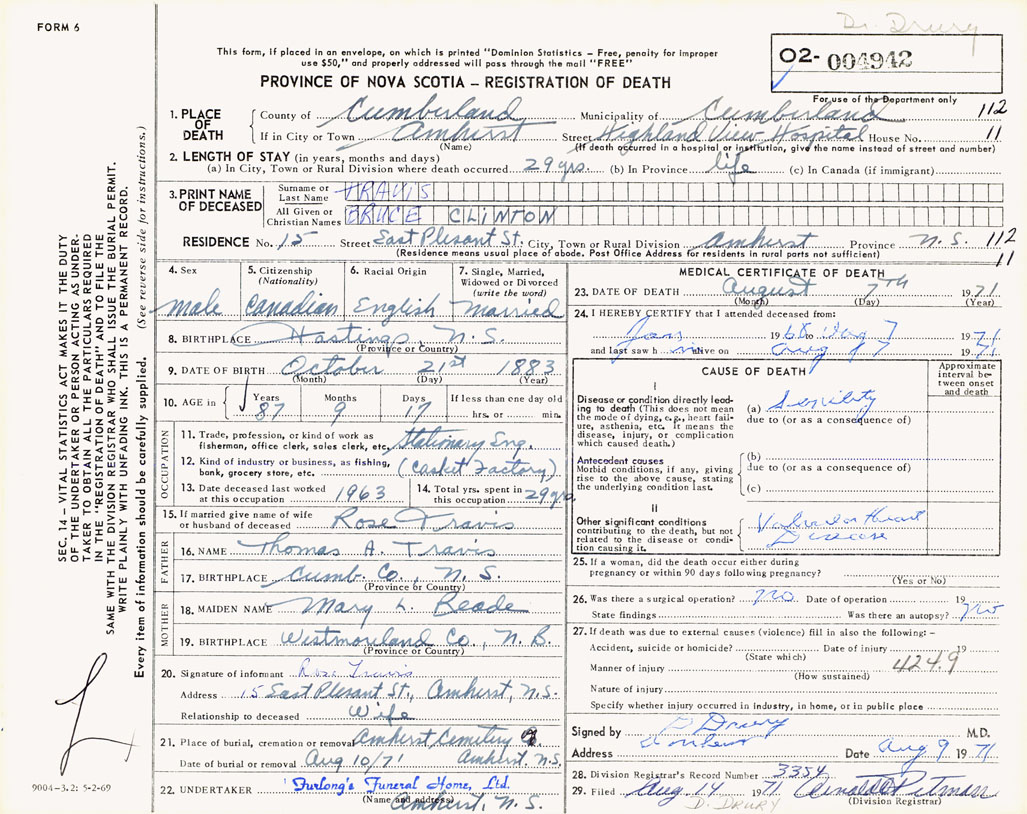 FORM 6
Dr. Drury
This form, if placed in an envelope, on which is printed "Dominion Statistics – Free, penalty for improper
use $50," and properly addressed will pass through the mail "FREE"
02- 004942
PROVINCE OF NOVA SCOTIA – REGISTRATION OF DEATH
For use of the Department only
1. PLACE OF DEATH
County of Cumberland Municipality of Cumberland 112
If in City or Town Amherst Street Highland View Hospital House No. 11
(Name) (If death occurred in a hospital or institution, give the name instead of street and number)
2. LENGTH OF STAY (in years, months and days)
(a) In City, Town or Rural Division where death occurred 29 yrs. (b) In Province life (c) In Canada (if immigrant)
3. PRINT NAME OF DECEASED
Surname or Last Name TRAVIS
All Given or Christian Names BRUCE CLINTON
RESIDENCE No. 15 Street East Plesant St. City, Town or Rural Division Amherst Province N.S. 112
(Residence means usual place of abode. Post Office Address for residents in rural parts not sufficient) 11
4. Sex
male
5. Citizenship
(Nationality)
Canadian
6. Racial Origin
English
7. Single, Married,
Widowed or Divorced
(write the word)
Married
8. BIRTHPLACE Hastings, N.S.
(Province or Country)
9. DATE OF BIRTH October 21st 1883
(Month) (Day) (Year)
10. AGE in Years Months Days If less than one day old
87 9 17 hrs. or min.
OCCUPATION
11. Trade, profession, or kind of work as
fisherman, office clerk, sales clerk, etc. Stationary Eng.
12. Kind of industry or business, as fishing,
bank, grocery store, etc. (Casket Factory)
13. Date deceased last worked
at this occupation 1963
14. Total yrs. spent in
this occupation 29 yrs.
15. If married give name of wife
or husband of deceased Rose Travis
FATHER
16. NAME Thomas A. Travis
17. BIRTHPLACE Cumb. Co., N.S.
(Province or Country)
MOTHER
18. MAIDEN NAME Mary L. Beade
19. BIRTHPLACE Westmoreland Co., N.B.
(Province or Country)
20. Signature of informant Rose Travis
Address 15 East Plesant St., Amherst, N.S.
Relationship to deceased Wife
21. Place of burial, cremation or removal Amherst Cemetery
Date of burial or removal Aug 10/71 Amherst, N.S.
22. UNDERTAKER Furlong's Funeral Home, Ltd.
(Name and address)
Amherst, N.S.
MEDICAL CERTIFICATE OF DEATH
23. DATE OF DEATH August 7TH 1971
(Month) (Day) (Year)
24. I HEREBY CERTIFY that I attended deceased from:
Jan 1968 to Aug 7 1971
and last saw him alive on Aug 7 1971
CAUSE OF DEATH
Approximate
interval be-
tween onset
and death
I
Disease or condition directly lead-
ing to death (This does not mean
the mode of dying, e.g., heart fail-
ure, asthenia, etc. It means the
disease, injury, or complication
which caused death.)
(a) Senility
due to (or as a consequence of)
Antecedent causes
Morbid conditions, if any, giving
rise to the above cause, stating
the underlying condition last.
(b)
due to (or as a consequence of)
(c)
II
Other significant conditions
contributing to the death, but not
related to the disease or condi-
tion causing it.
Valvular Heart
Disease
25. If a woman, did the death occur either during
pregnancy or within 90 days following pregnancy?
(Yes or No)
26. Was there a surgical operation? no Date of operation 19
State findings Was there an autopsy? no
27. If death was due to external causes (violence) fill in also the following: –
Accident, suicide or homicide? Date of injury 19
(State which)
Manner of injury 424.9
(How sustained)
Nature of injury
Specify whether injury occurred in industry, in home, or in public place
Signed by D Drury M.D.
Address Date Aug 9 1971
28. Division Registrar's Record Number 3354
29. Filed Aug. 14 1971 Arnold Pitman
(Division Registrar)
D. DRURY
SEC. 14 – VITAL STATISTICS ACT MAKES IT THE DUTY
OF THE UNDERTAKER OR PERSON ACTING AS UNDER-
TAKER TO OBTAIN ALL THE PARTICULARS REQUIRED
IN THE "REGISTRATION OF DEATH" AND TO FILE THE
SAME WITH THE DIVISION REGISTRAR WHO SHALL ISSUE THE BURIAL PERMIT.
WRITE PLAINLY WITH UNFADING INK. THIS IS A PERMANENT RECORD.
Every item of information should be carefully supplied. (See reverse side for instructions.)
9004-3.2: 5-2-69